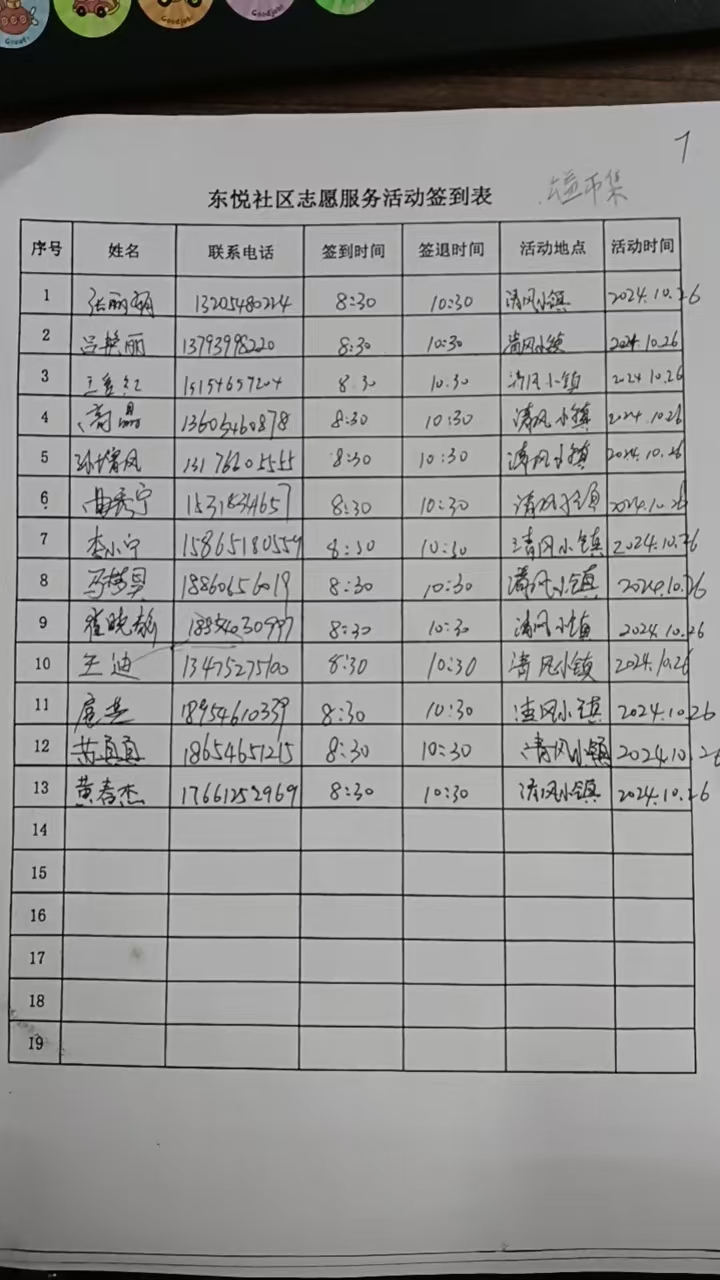 Good job!
7
东悦社区志愿服务活动签到表 公益市集
序号 姓名 联系电话 签到时间 签退时间 活动地点 活动时间
1 张丽娟 13205480224 8:30 10:30 清风小镇 2024.10.26
2 吕艳丽 13793998220 8:30 10:30 清风小镇 2024.10.26
3 15154657204 8:30 10:30 清风小镇 2024.10.26
4 高晶 13605460878 8:30 10:30 清风小镇 2024.10.26
5 孙清风 13176605555 8:30 10:30 清风小镇 2024.10.26
6 曲秀宁 8:30 10:30 清风小镇 2024.10.26
7 李小宁 15865180559 8:30 10:30 清风小镇 2024.10.26
8 18860656019 8:30 10:30 清风小镇 2024.10.26
9 18954030997 8:30 10:30 清风小镇 2024.10.26
10 王迪 13475275100 8:30 10:30 清风小镇 2024.10.26
11 18954610339 8:30 10:30 清风小镇 2024.10.26
12 苏真真 18654651215 8:30 10:30 清风小镇 2024.10.26
13 黄春杰 17661252969 8:30 10:30 清风小镇 2024.10.26
14
15
16
17
18
19